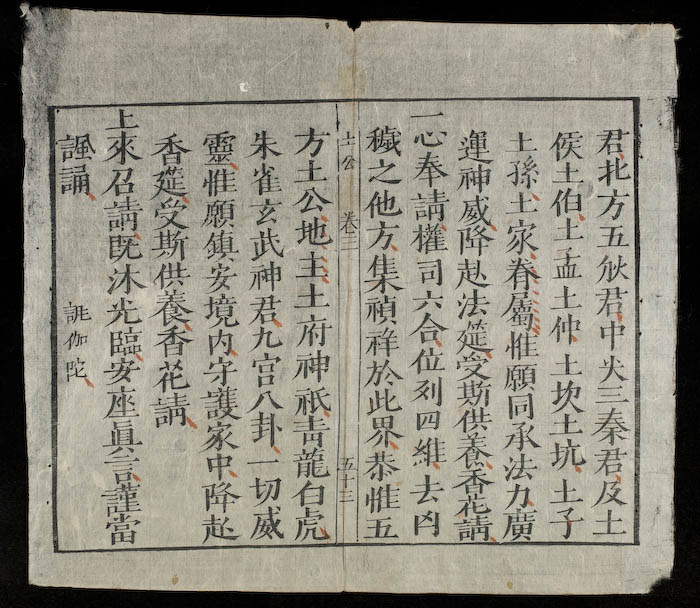 君北方五狄君中央三秦君及土
侯土伯土孟土仲土坎土坑土子
土孫土家眷屬惟願同承法力廣
運神威降赴法筵受斯供養香花請
一心奉請權司六合位列四維去凶
穢之他方集禎祥於此界恭惟五
土公 卷三 五十三
方土公地主土府神祇青龍白虎
朱雀玄武神君九宮八卦一切威
靈惟願鎮安境內守護家中降赴
香筵受斯供養香花請
上來召請既沐光臨安座眞言謹當
諷誦 誐伽陀